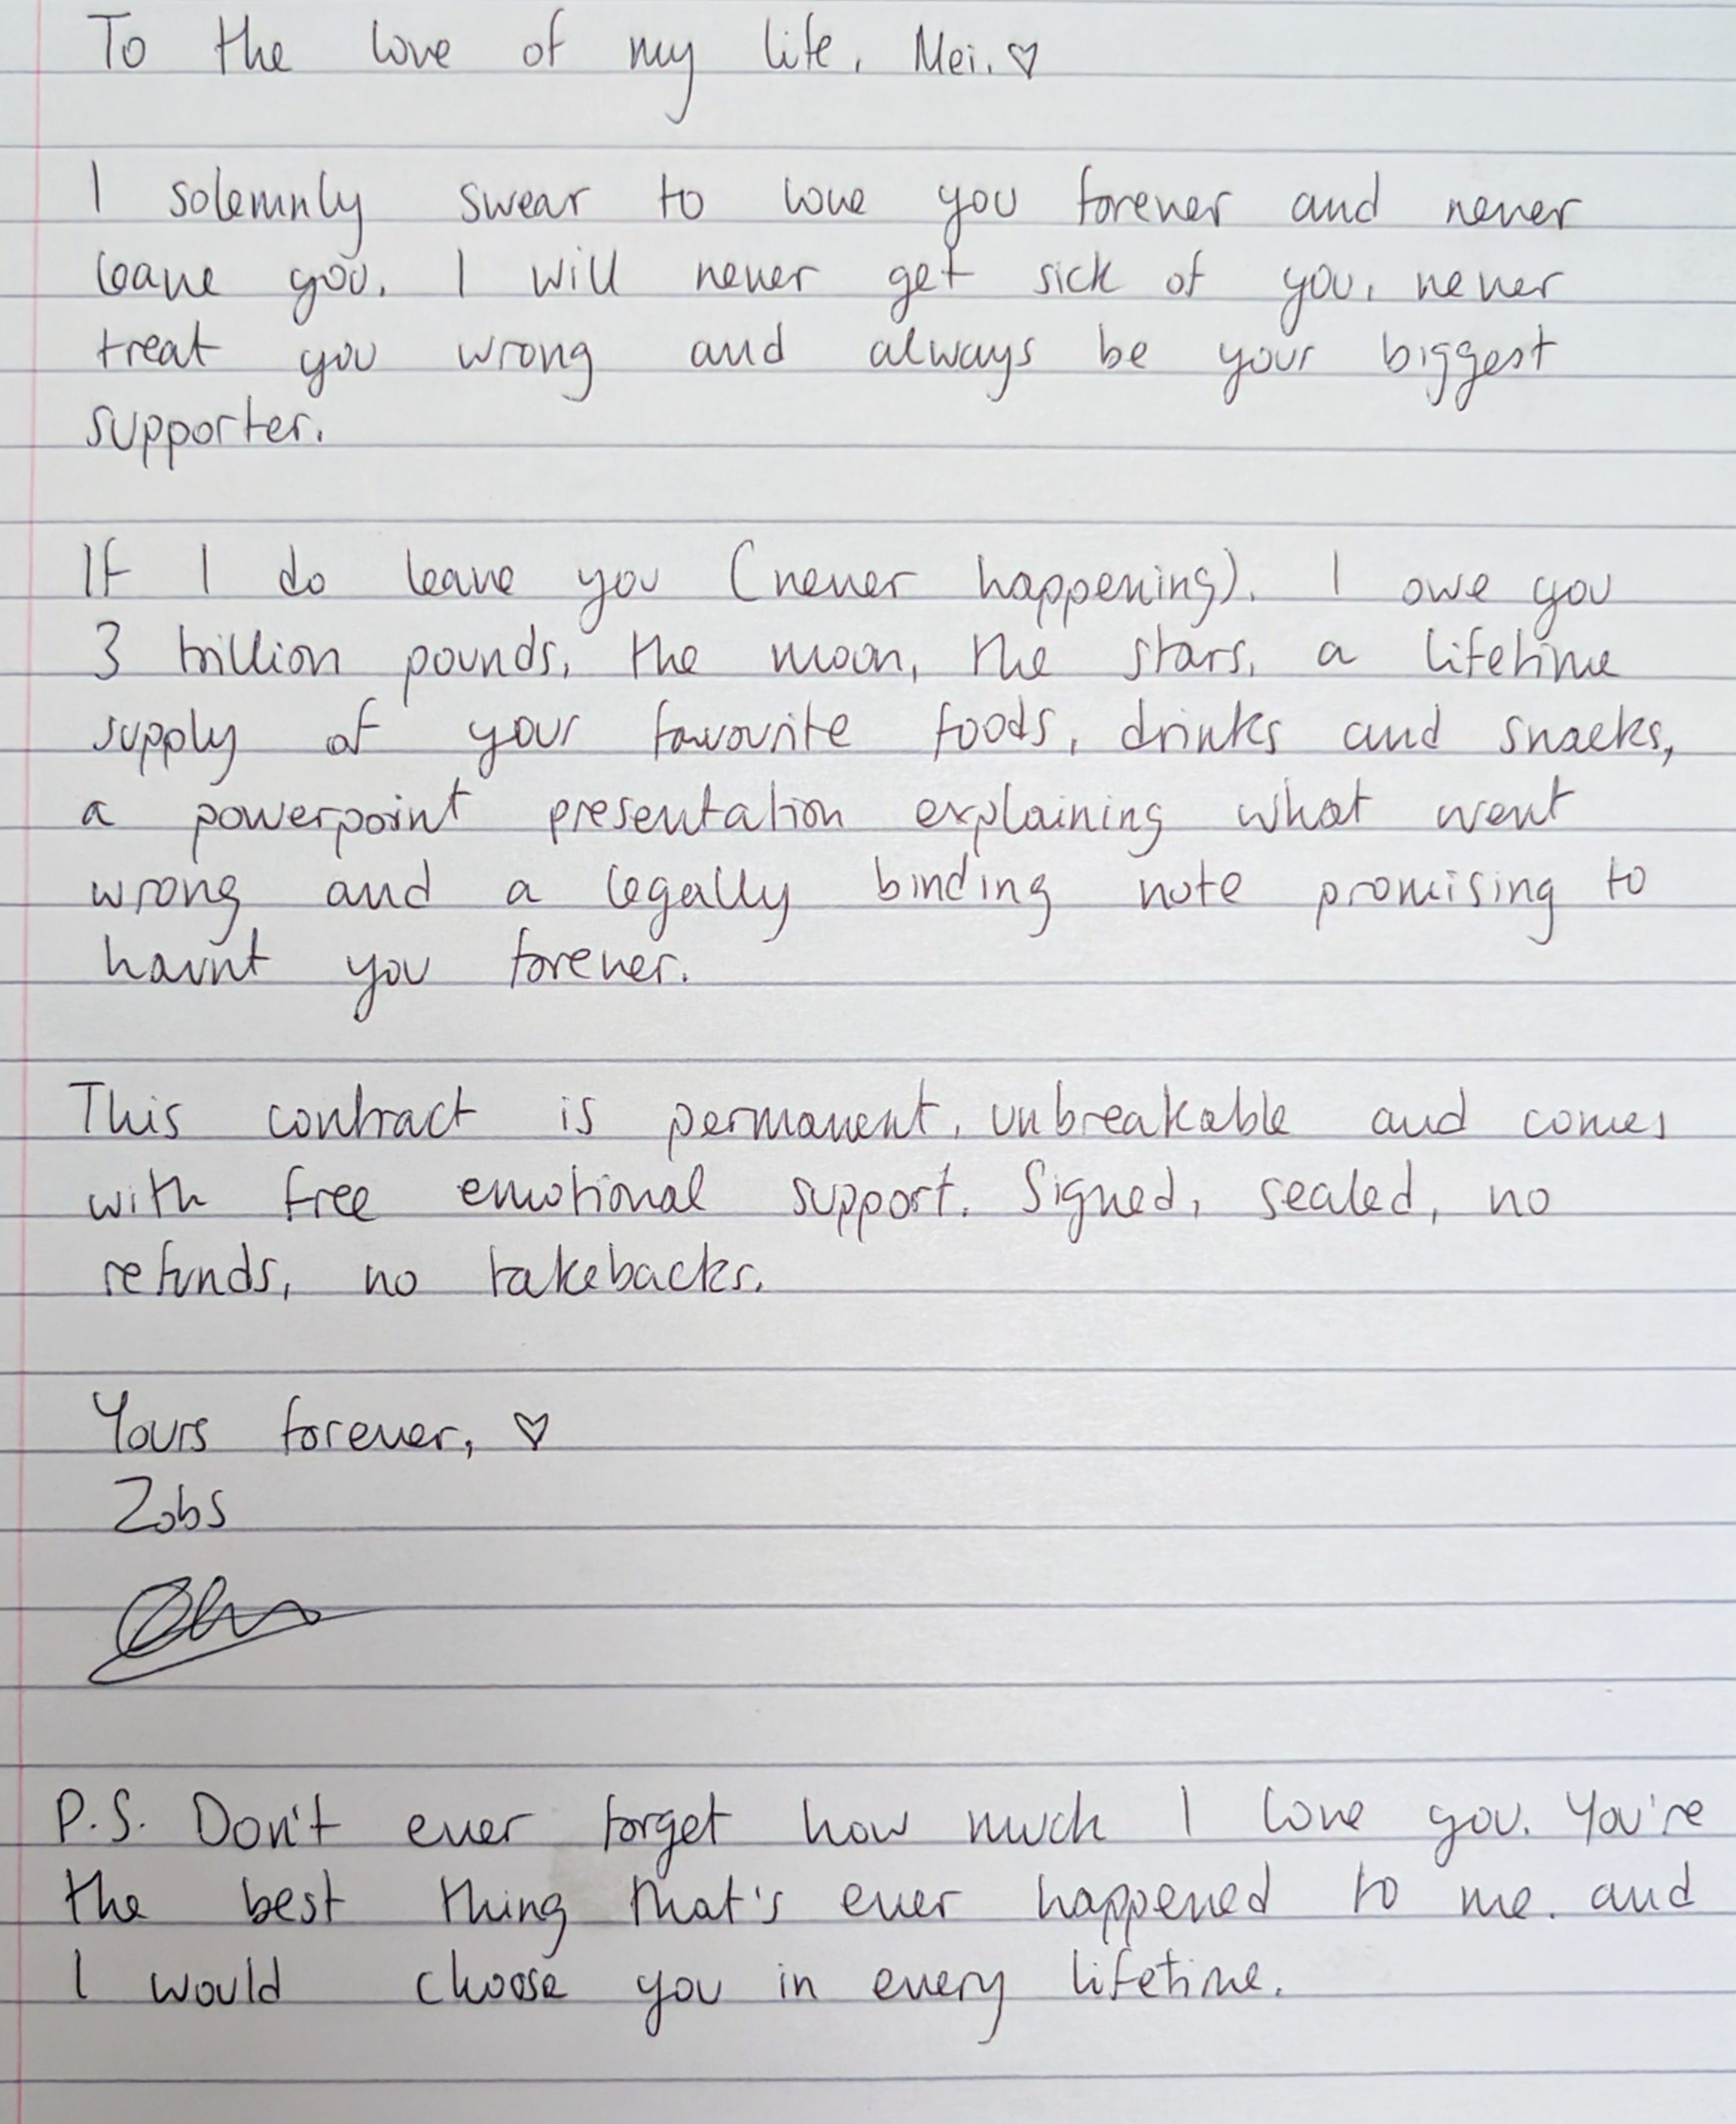 To the love of my life, Mei. ♡
I solemnly swear to love you forever and never
leave you. I will never get sick of you, never
treat you wrong and always be your biggest
supporter.
If I do leave you (never happening), I owe you
3 trillion pounds, the moon, the stars, a lifetime
supply of your favourite foods, drinks and snacks,
a powerpoint presentation explaining what went
wrong and a legally binding note promising to
haunt you forever.
This contract is permanent, unbreakable and comes
with free emotional support. Signed, sealed, no
refunds, no takebacks.
Yours forever, ♡
Zobs
P.S. Don't ever forget how much I love you. You're
the best thing that's ever happened to me, and
I would choose you in every lifetime.